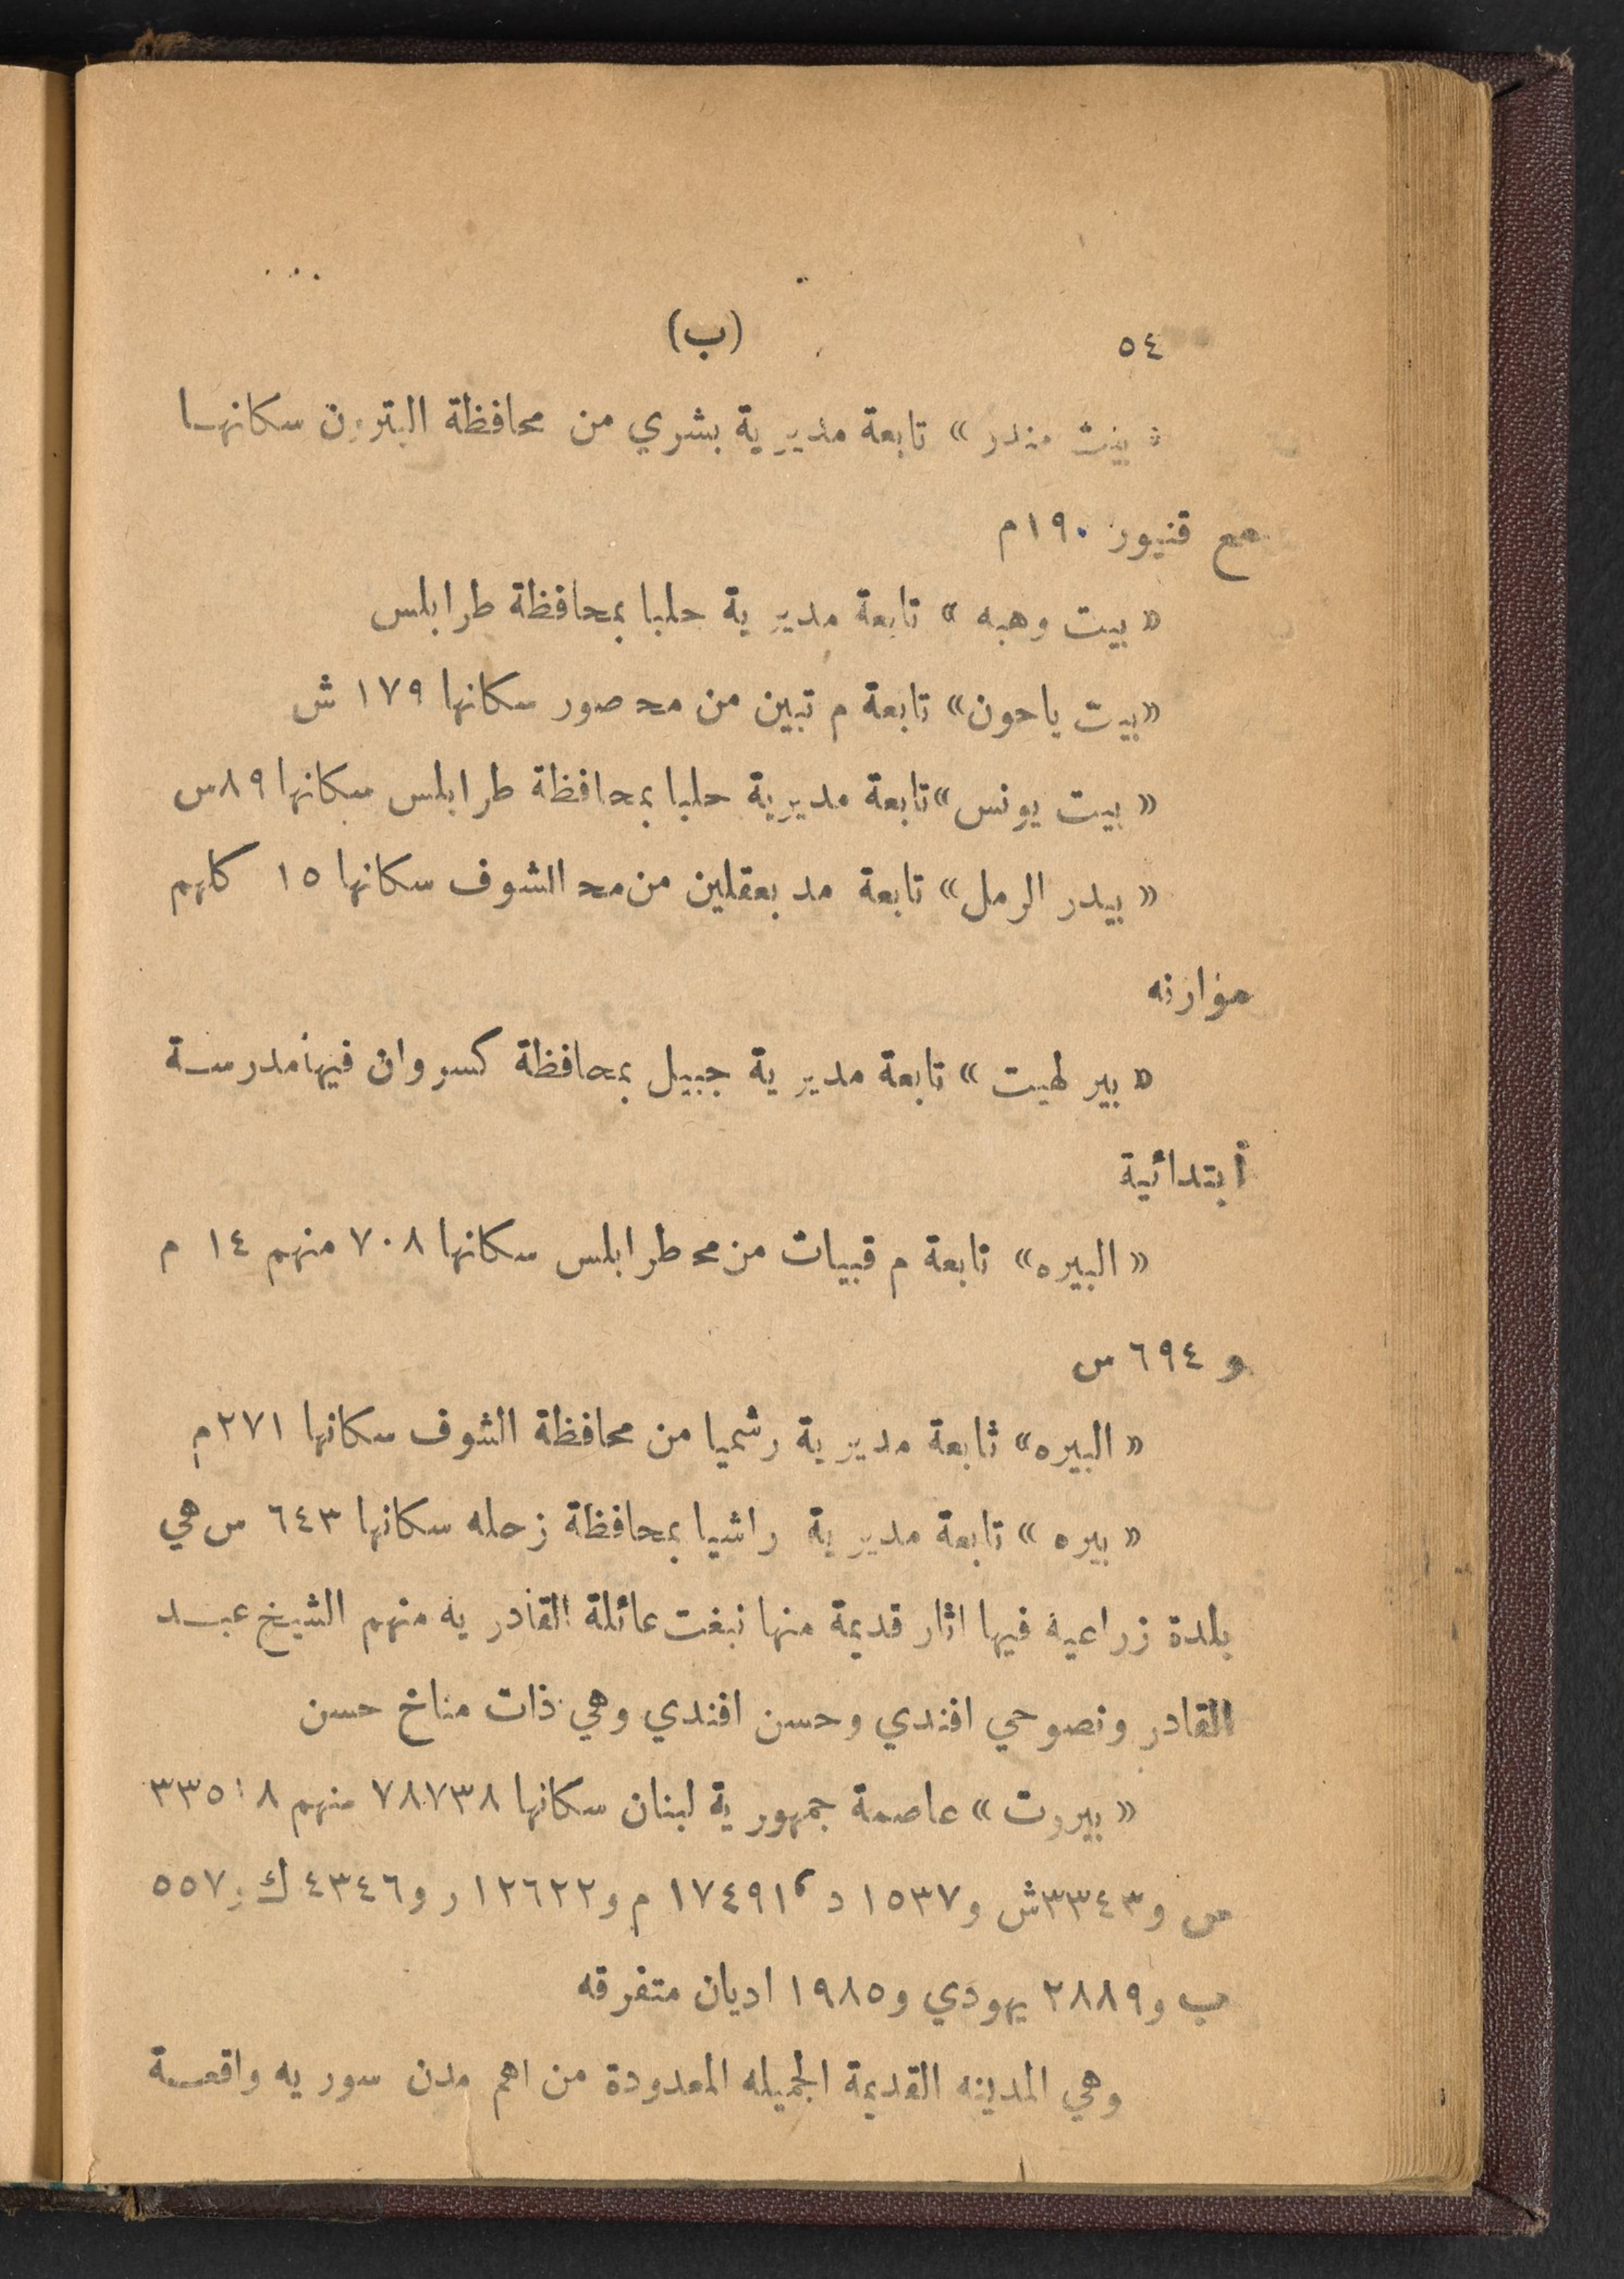 ٥٤
(ب)
« بيت منذر » تابعة مديرية بشري من محافظة البترون سكانها
مع قنيور ١٩٠ م
« بيت وهبه » تابعة مديرية حلبا بمحافظة طرابلس
«بيت ياحون» تابعة م تبين من مح صور سكانها ١٧٩ ش
« بيت يونس» تابعة مديرية حلبا بمحافظة طرابلس سكانها ٨٩ س
« بيدر الرمل» تابعة مد بعقلين من مح الشوف سكانها ١٥ كلهم
موارنه
« بير لهيت » تابعة مديرية جبيل بمحافظة كسروان فيها مدرسة
أبتدائية
« البيره» تابعة م قبيات من مح طرابلس سكانها ٧٠٨ منهم ١٤ م
و ٦٩٤ س
« البيره» ثابعة مديرية رشميا من محافظة الشوف سكانها ٢٧١ م
« بيره » تابعة مديرية راشيا بمحافظة زحله سكانها ٦٤٣ س هي
بلدة زراعية فيها اثار قديمة منها نبغت عائلة القادريه منهم الشيخ عبد
القادر ونصوحي افندي وحسن افندي وهي ذات مناخ حسن
« بيروت » عاصمة جمهورية لبنان سكانها ٧٨٧٣٨ منهم
س و٣٣٤٣ ش و١٥٣٧ د ١٧٤٩١ م و١٢٦٢٢ ر و٤٣٤٦ ك و٥٥٧
ب و٢٨٨٩ يهودي و١٩٨٥ اديان متفرقه
وهي المدينه القديمة الجميله المعدودة من اهم مدن سوريه واقعة